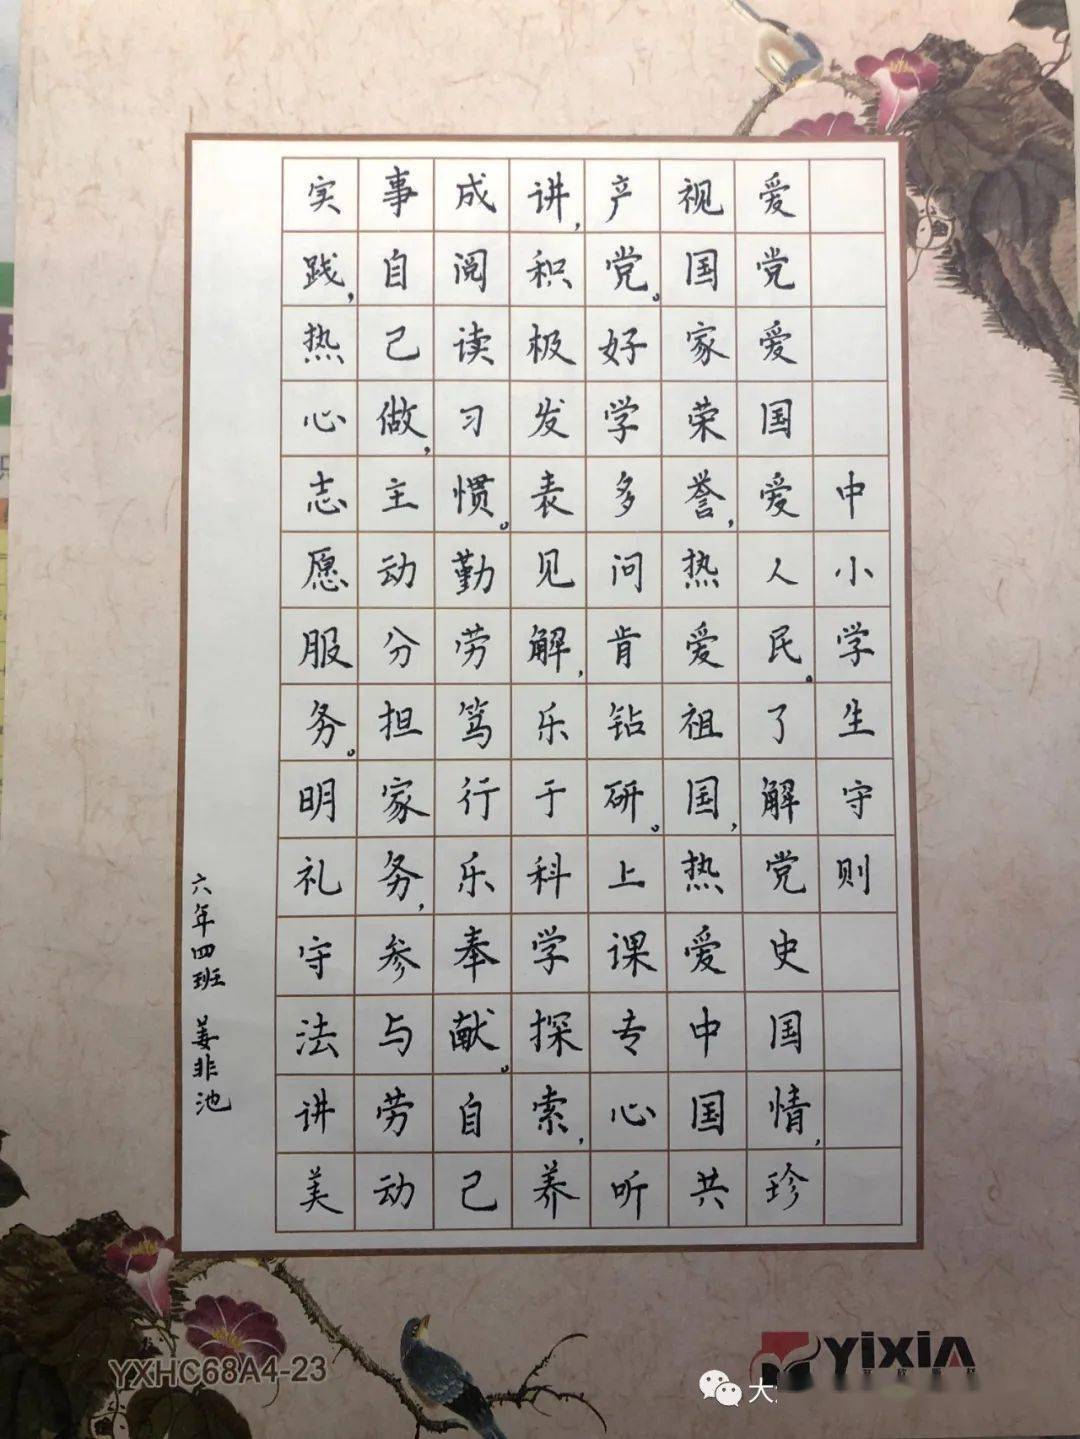 中小学生守则
爱党爱国爱人民。了解党史国情,珍
视国家荣誉,热爱祖国,热爱中国共
产党。好学多问肯钻研。上课专心听
讲,积极发表见解,乐于科学探索,养
成阅读习惯。勤劳笃行乐奉献。自己
事自己做,主动分担家务,参与劳动
实践,热心志愿服务。明礼守法讲美
六年四班 姜非池
YXHC68A4-23
YixiA
大